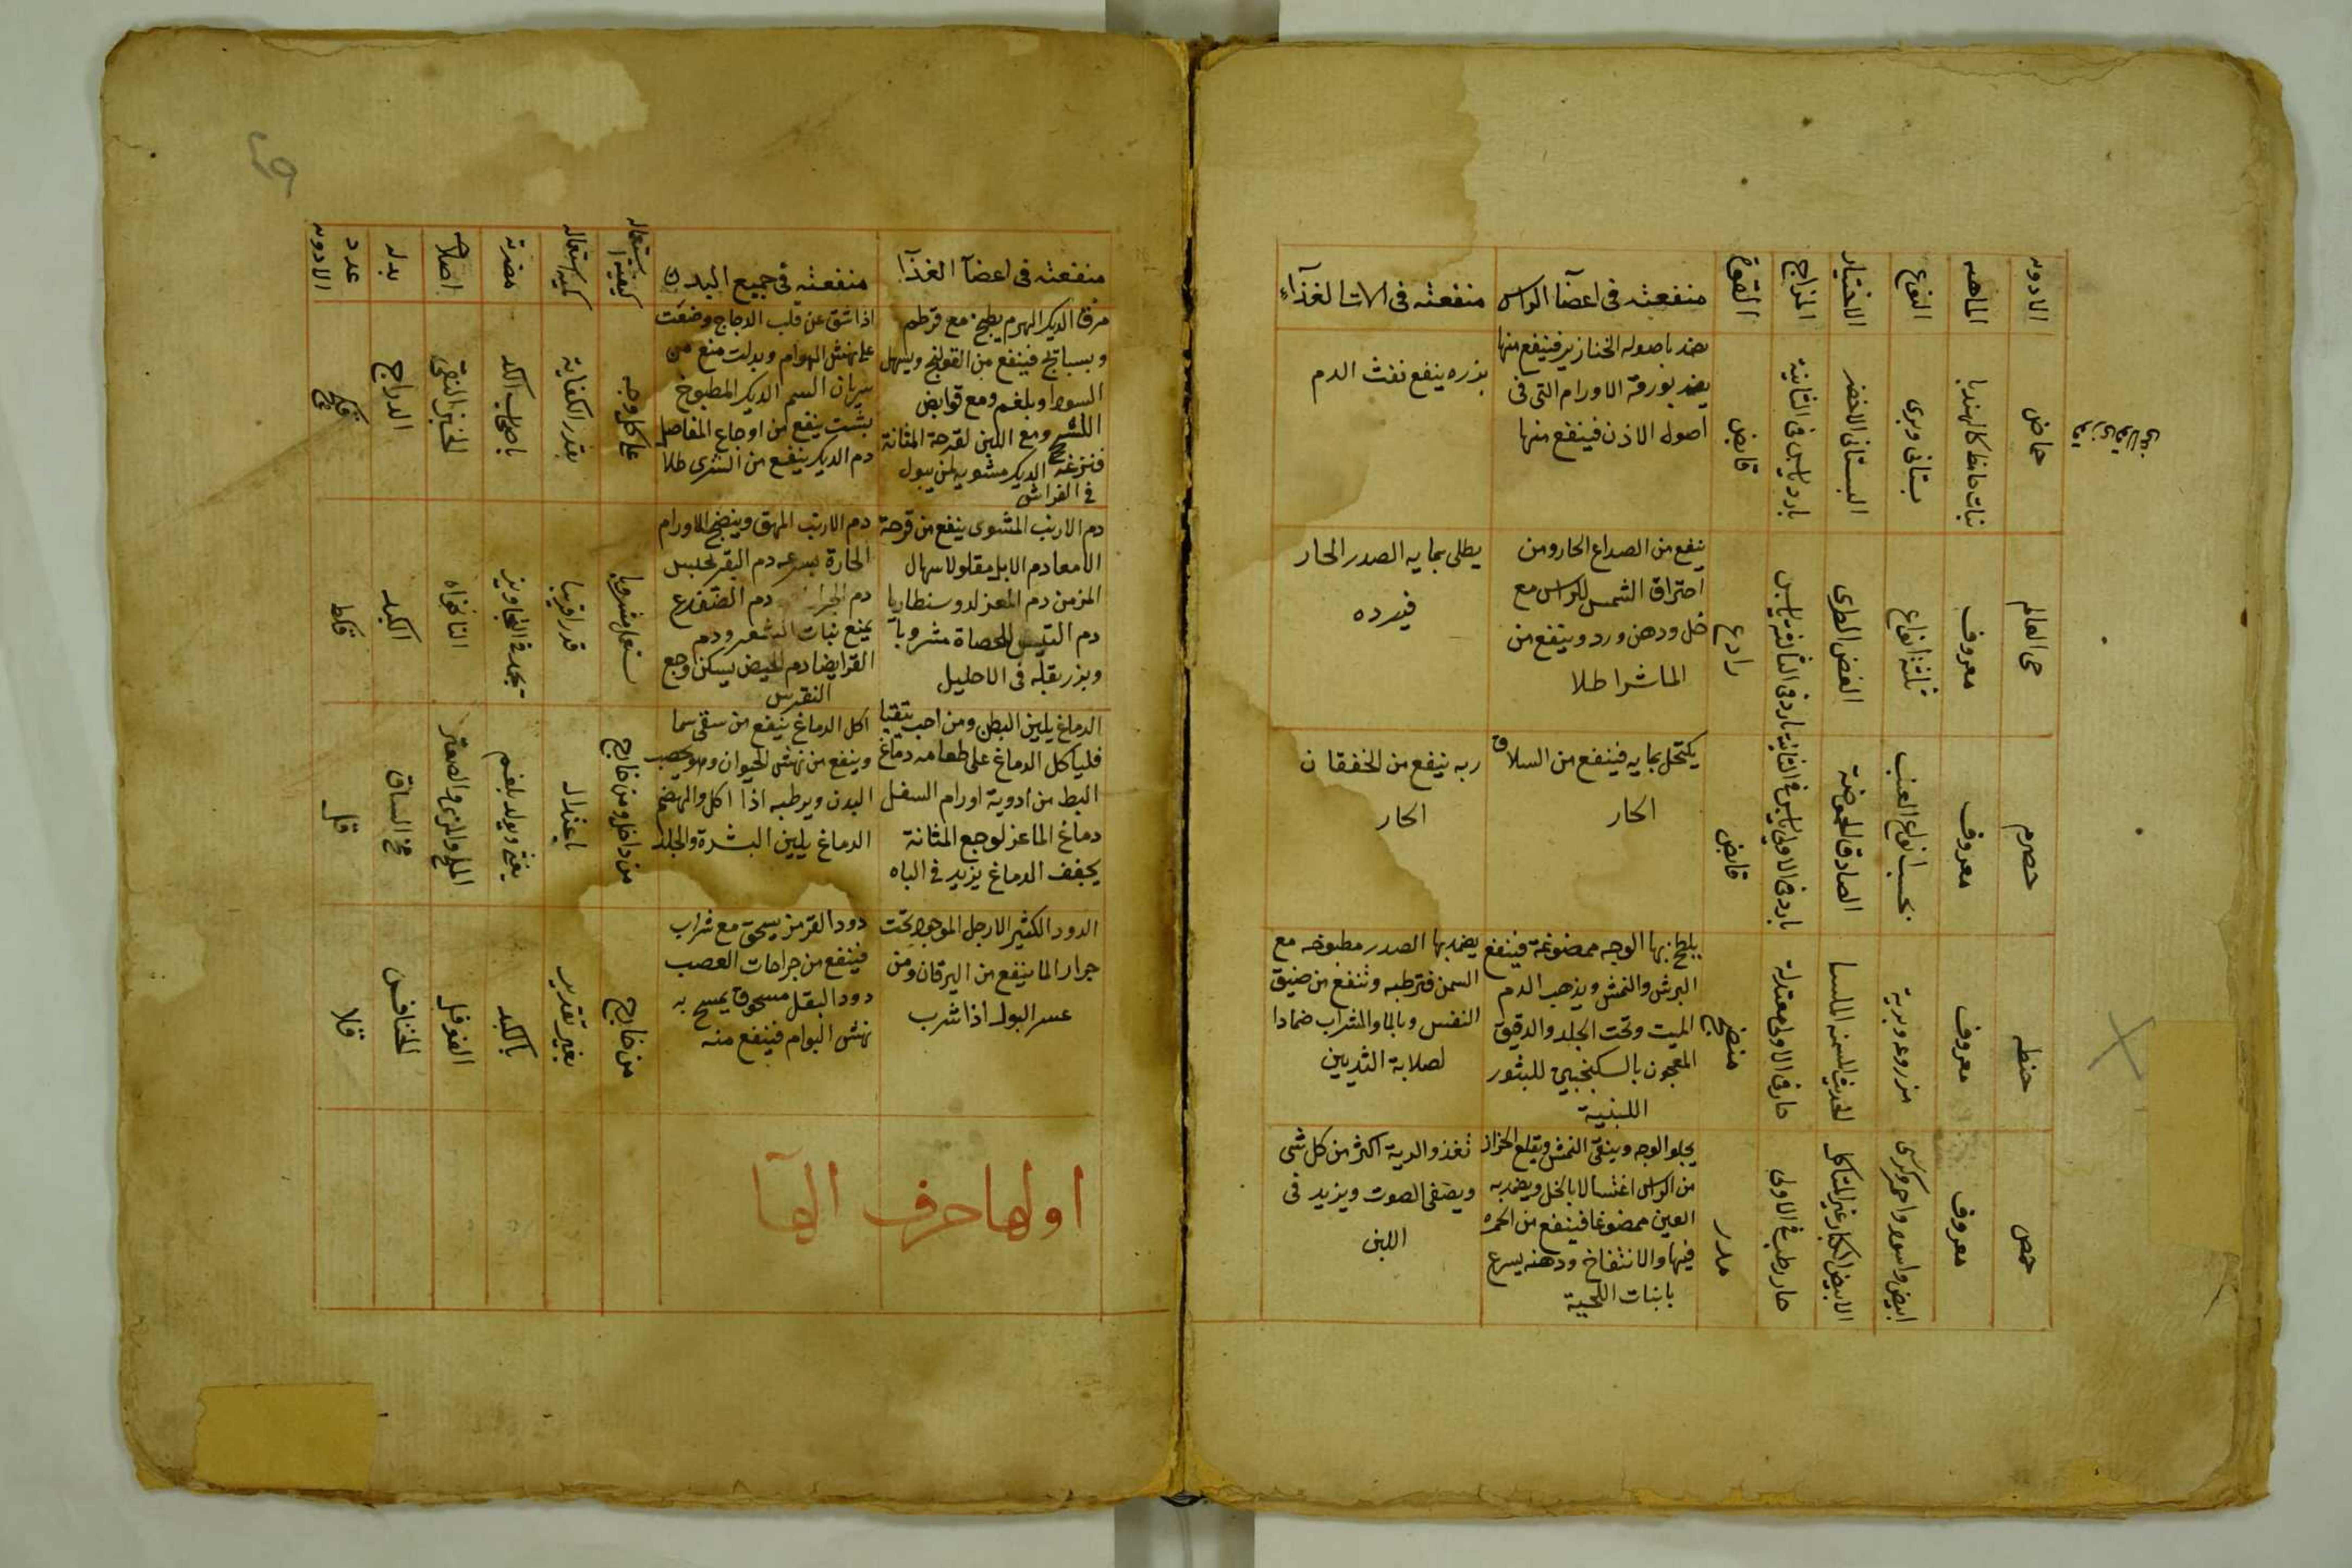 الادويه
الماهيه
النوع
الاختيار
المزاج
القوة
منفعته فى اعضآ الراس
منفعته فى الات الغذآء
حماض
نبات حامظ كالهندبا
بستانى وبرى
البستانى الاخضر
بارد يابس فى الثانية
قابض
يضمد باصوله الخنازير فينفع منها
يضمد بورقه الاورام التى فى
اصول الاذن فينفع منها
بذره ينفع نفث الدم
حى العالم
معروف
ثلثة انواع
الغض الطرى
بارد فى الثالثة يابس
رادع
ينفع من الصداع الحار ومن
احتراق الشمس للراس مع
خل ودهن ورد وينفع من
الماشرا طلا
يطلى بمايه الصدر الحار
فيبرده
حصرم
معروف
بحسب انواع العنب
الصادق الحموضة
بارد فى الاولى يابس فى الثانية
قابض
يكتحل بمايه فينفع من السلاق
الحار
ربه ينفع من الخفقان
الحار
حنطه
معروف
مزروعه وبرية
الحديث السمنه الملسا
حار فى الاولى معتدلة
منضج
يلطخ بها الوجه ممضوغة فينفع
البرش والنمش ويذهب الدم
الميت وتحت الجلد والدقيق
المعجون بالسكنجبين للبثور
اللبنية
يضمد بها الصدر مطبوخه مع
السمن فترطبه وتنفع من ضيق
النفس وبالما والشراب ضمادا
لصلابة الثديين
حمص
معروف
ابيض واسود واحمر وكرسى
الابيض الكبار غير المتاكل
حار رطب فى الاولى
مدر
يجلو الوجه وينقى النمش ويقلع الحزاز
من الراس اغتسالا بالخل ويضمد به
العين ممضوغا فينفع من الحمره
فيها والانتفاخ ودهنه يسرع
بانبات اللحية
تغذو الرية اكثر من كل شى
ويصفى الصوت ويزيد فى
اللبن
منفعته فى اعضآ الغذآ
منفعته فى جميع البدن
كيفية استعماله
كمية استعماله
مضرته
اصلاحه
بدله
عدد
الادويه
مرق الديك الهرم يطبخ مع قرطم
وبسبايج فينفع من القولنج ويسهل
السودا وبلغم ومع قوابض
ومع اللبن لقرحة المثانة
الديك مشويه لمن يبول
فى الفراش
اذا شق عن قلب الدجاج وضعت
على نهش الهوام وبدلت منع من
سريان السم الديك المطبوخ
بشبت ينفع من اوجاع المفاصل
دم الديك ينفع من الشرى طلا
على كل وجه
بقدر الكفاية
باصحاب الكد
الخبز النقى
الدراج
دم الارنب المشوى ينفع من قرحة
الامعا دم الابل مقلو لاسهال
المزمن دم المعز لدوسنطاريا
دم التيس للحصاة مشروبا
وبزر بقله فى الاحليل
دم الارنب البهق وينضج الاورام
الحارة بسرعه دم البقر يحبس
دم دم الضفدع
يمنع نبات الشعر ودم
القرا يضا دم الحيض يسكن وجع
النقرس
يستعمل مشروبا
قدرا قريبا
النانخواه
الكبد
قكط
الدماغ يلين البطن ومن احب يتقيا
فلياكل الدماغ على طعامه دماغ
البط من ادوية اورام السفل
دماغ الماعز لوجع المثانة
يجفف الدماغ يزيد فى الباه
اكل الدماغ ينفع من سقى سما
وينفع من نهش الحيوان وهو يخصب
البدن ويرطبه اذا اكل والهضم
الدماغ يلين البشرة والجلد
من داخل ومن خارج
باعتدال
يغثى ويولد بلغم
الملح والمرى والصعتر
مخ الساق
قل
الدود الكثير الارجل الموجود تحت
جرار الما ينفع من اليرقان ومن
عسر البول اذا شرب
دود القرمز يسحق مع شراب
فينفع من جراحات العصب
دود البقل مسحوق يمسح به
نهش الهوام فينفع منه
من خارج
بغير تقدير
بالكبد
الفوفل
الخنافس
قلا
اولها حرف الهآ